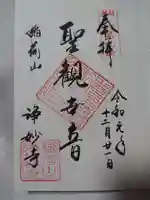 奉拝
令和元年
十二月廿一日
聖観世音
稲荷山
浄妙寺